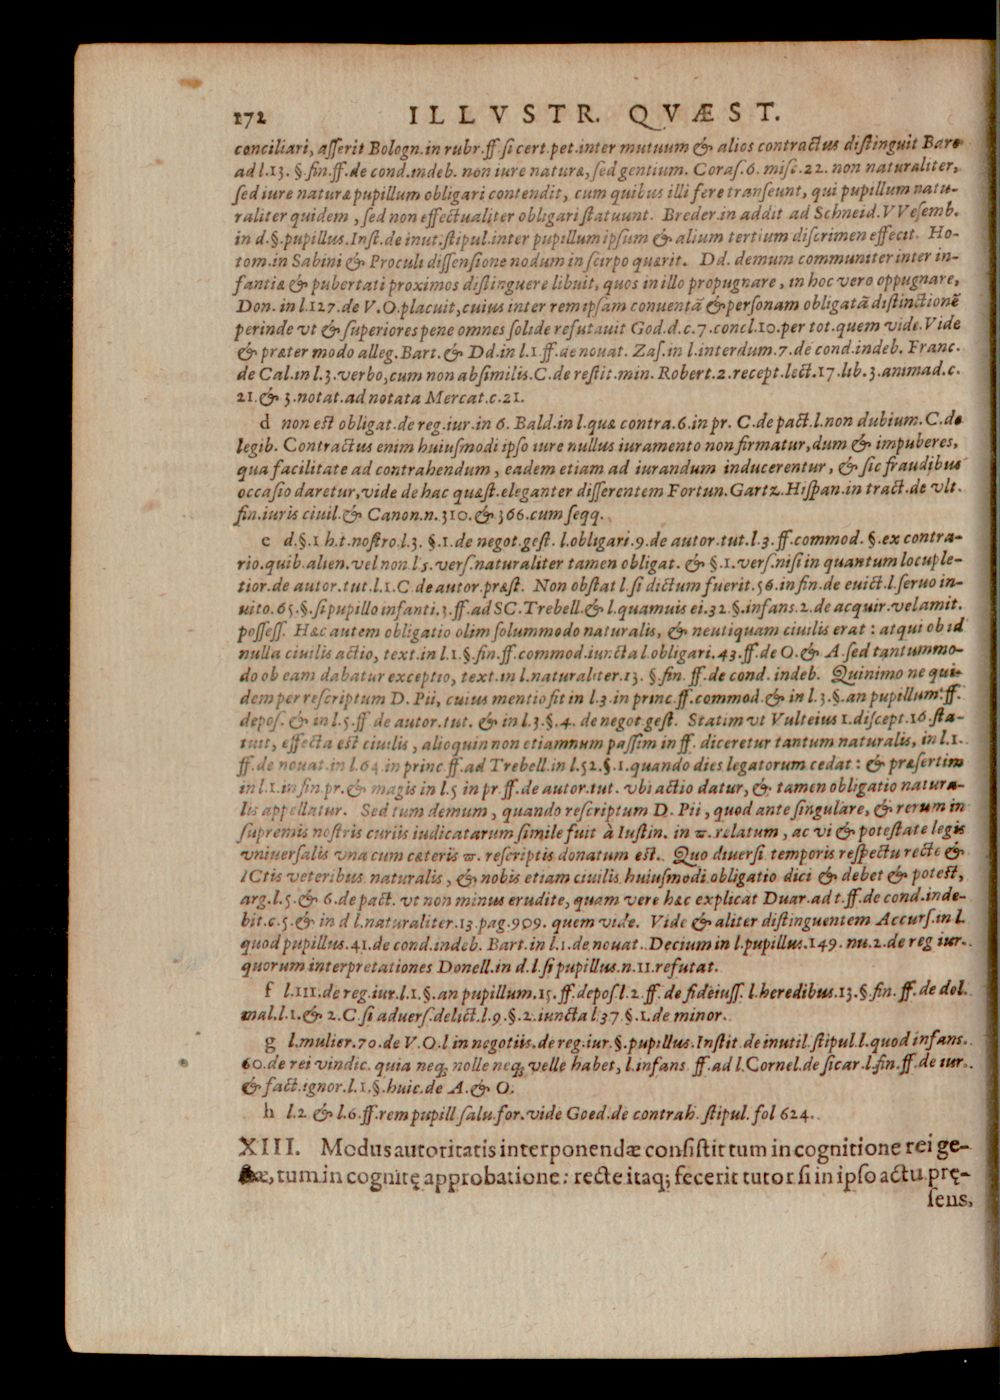 172 ILLVSTR. QVÆST.
conciliari, asserit Bologn. in rubr. ff. si cert. pet. inter mutuum & alios contractus distinguit Baro
ad l. 13. §. fin. ff. de cond. indeb. non iure naturæ, sed gentium. Coras. 6. misc. 22. non naturaliter,
sed iure naturæ pupillum obligari contendit, cum quibus illi fere transeunt, qui pupillum natu-
raliter quidem, sed non effectualiter obligari statuunt. Breder. in addit ad Schneid. VVesemb.
in d. §. pupillus. Inst. de inut. stipul. inter pupillum ipsum & alium tertium discrimen effecit. Ho-
tom. in Sabini & Proculi dissensione nodum in scirpo quærit. Dd. demum communiter inter in-
fantiæ & pubertati proximos distinguere libuit, quos in illo propugnare, in hoc vero oppugnare,
Don. in l. 127. de V. O. placuit, cuius inter rem ipsam conuentã & personam obligatã distinctionẽ
perinde vt & superiores pene omnes solide refutauit God. d. c. 7. concl. 10. per tot. quem vide. Vide
& præter modo alleg. Bart. & Dd. in l. 1. ff. de nouat. Zas. in l. interdum. 7. de cond. indeb. Franc.
de Cal. in l. 3. verbo, cum non absimilis. C. de restit. min. Robert. 2. recept. lect. 17. lib. 3. animad. c.
21. & 3. notat. ad notata Mercat. c. 21.
d non est obligat. de reg. iur. in 6. Bald. in l. quæ contra. 6. in pr. C. de pact. l. non dubium. C. de
legib. Contractus enim huiusmodi ipso iure nullus iuramento non firmatur, dum & impuberes,
qua facilitate ad contrahendum, eadem etiam ad iurandum inducerentur, & sic fraudibus
occasio daretur, vide de hac quæst. eleganter disserentem Fortun. Gartz. Hispan. in tract. de vlt.
fin. iuris ciuil. & Canon. n. 310. & 366. cum seqq.
e d. §. 1 h. t. nostro. l. 3. §. 1. de negot. gest. l. obligari. 9. de autor. tut. l. 3. ff. commod. §. ex contra-
rio. quib. alien. vel non. l. 5. vers. naturaliter tamen obligat. & §. 1. vers. nisi in quantum locuple-
tior. de autor. tut. l. 1. C de autor. præst. Non obstat l. si dictum fuerit. 56. in fin. de euict. l. seruo in-
uito. 65. §. si pupillo infanti. 3. ff. ad SC. Trebell. & l. quamuis ei. 32. §. infans. 2. de acquir. vel amit.
possess. Hæc autem obligatio olim solummodo naturalis, & neutiquam ciuilis erat : atqui ob id
nulla ciuilis actio, text. in l. 1. §. fin. ff. commod. iuncta l. obligari. 43. ff. de O. & A. sed tantummo-
do ob eam dabatur exceptio, text. in l. naturaliter. 13. §. fin. ff. de cond. indeb. Quinimo ne qui-
dem per rescriptum D. Pii, cuius mentio fit in l. 3. in princ. ff. commod. & in l. 3. §. an pupillum. ff.
depos. & in l. 5. ff de autor. tut. & in l. 3. §. 4. de negot. gest. Statim vt Vulteius 1. discept. 16. sta-
tuit, effecta est ciuilis, alioquin non etiamnum passim in ff. diceretur tantum naturalis, in l. 1.
ff. de nouat. in l. 64. in princ. ff. ad Trebell. in l. 52. §. 1. quando dies legatorum cedat : & præsertim
in l. 1. in fin. pr. & magis in l. 5 in pr. ff. de autor. tut. vbi actio datur, & tamen obligatio natura-
lis appellatur. Sed tum demum, quando rescriptum D. Pii, quod ante singulare, & rerum in
supremis nostris curiis iudicatarum simile fuit à Iustin. in π. relatum, ac vi & potestate legis
vniuersalis vna cum cæteris π. rescriptis donatum est. Quo diuersi temporis respectu recte &
ICtis veteribus naturalis, & nobis etiam ciuilis huiusmodi obligatio dici & debet & potest,
arg. l. 5. & 6. de pact. vt non minus erudite, quam vere hæc explicat Duar. ad t. ff. de cond. inde-
bit. c. 5. & in d l. naturaliter. 13. pag. 909. quem vide. Vide & aliter distinguentem Accurs. in l.
quod pupillus. 41. de cond. indeb. Bart. in l. 1. de nouat. Decium in l. pupillus. 149. nu. 2. de reg iur.
quorum interpretationes Donell. in d. l. si pupillus. n. 11. refutat.
f l. 111. de reg. iur. l. 1. §. an pupillum. 15. ff. depos. l. 2. ff. de fideiuss. l. heredibus. 13. §. fin. ff. de dol.
mal. l. 1. & 2. C. si aduers. delict. l. 9. §. 2. iuncta l 37. §. 1. de minor.
g l. mulier. 70. de V. O. l in negotiis. de reg. iur. §. pupillus. Instit. de inutil. stipul. l. quod infans.
60. de rei vindic. quia neq; nolle neq; velle habet, l. infans. ff. ad l. Cornel. de sicar. l. fin. ff. de iur.
& fact. ignor. l. 1. §. huic. de A. & O.
h l. 2 & l. 6. ff. rem pupill. salu. for. vide Goed. de contrah. stipul. fol 624.
XIII. Modus autoritatis interponendæ consistit tum in cognitione rei ge-
stæ, tum in cognitę approbatione: recte itaq; fecerit tutor si in ipso actu prę-
sens,